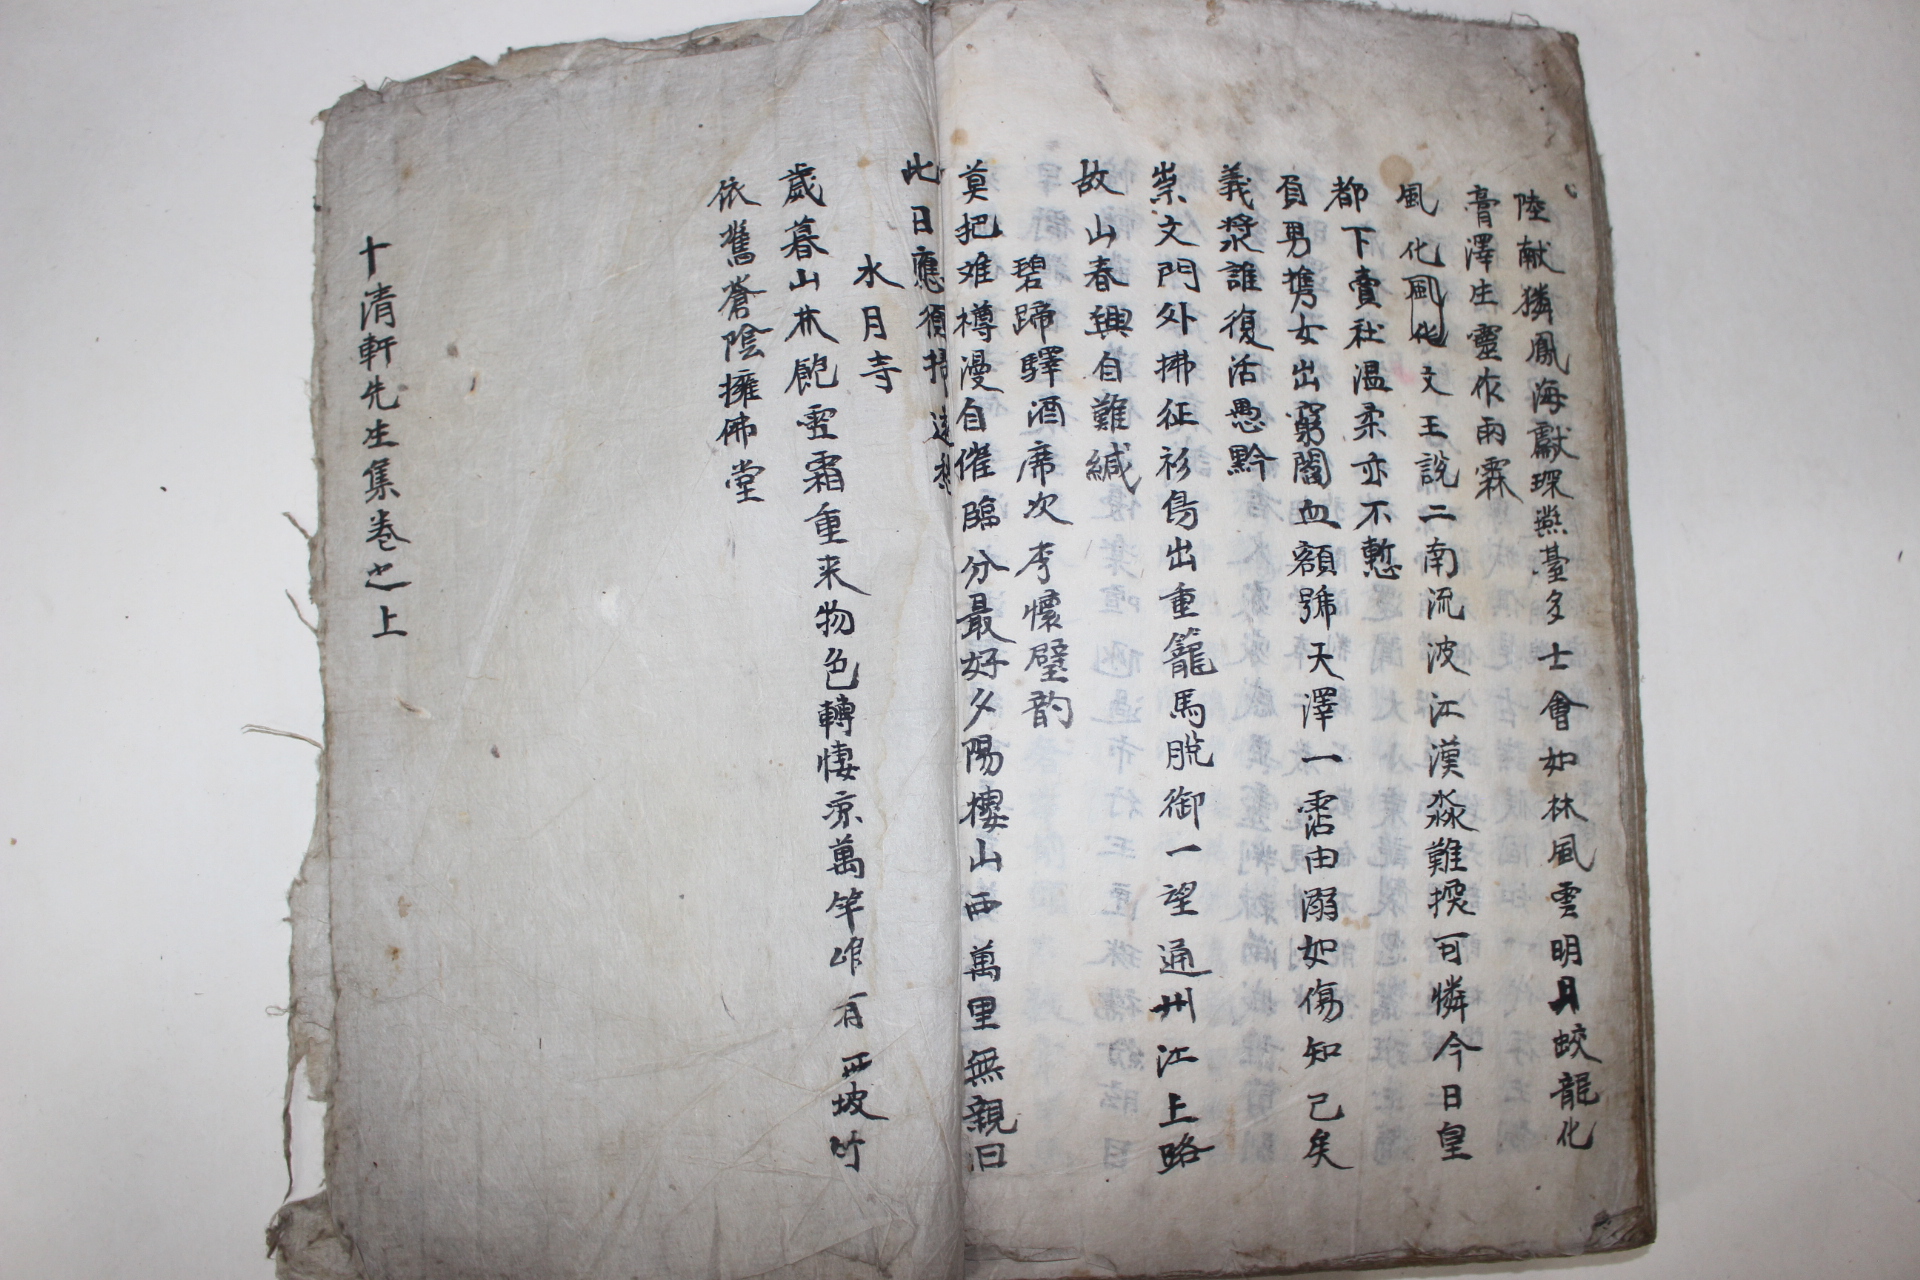 陸献獜鳳海獻琛燕臺多士會如林風雲明月蛟龍化
膏澤生靈作雨霖
風化風化文王說二南流波江漢淼難探可憐今日皇
都下賣社温柔亦不慙
負男携女出窮閻血額號天澤一霑由溺如傷知已矣
義漿誰復活愚黔
崇文門外拂征衫鳥出重籠馬脫御一望通州江上路
故山春興自難緘
碧蹄驛酒席次李懷壁韵
莫把难樽漫自催臨分最好夕陽樓山西萬里無親旧
此日應須掃
水月寺
歲暮山林飽雪霜重来物色轉悽凉萬竿唯有西坡竹
依舊蒼陰擁佛堂
十清軒先生集卷之上